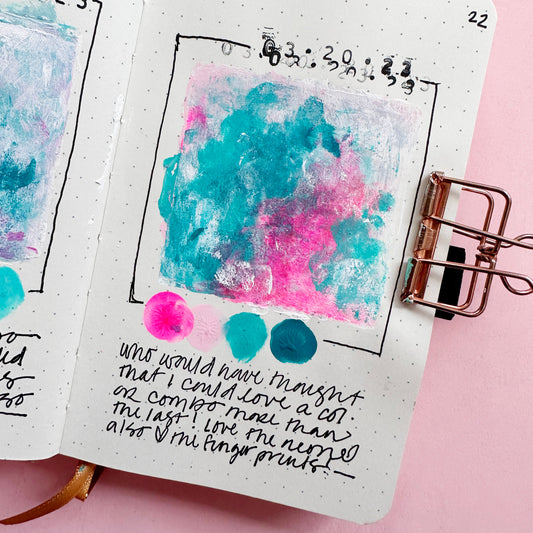 22
03.20.23
who would have thought
that I could love a col-
or combo more than
the last! Love the neons
also ♡ the fingerprints!
so